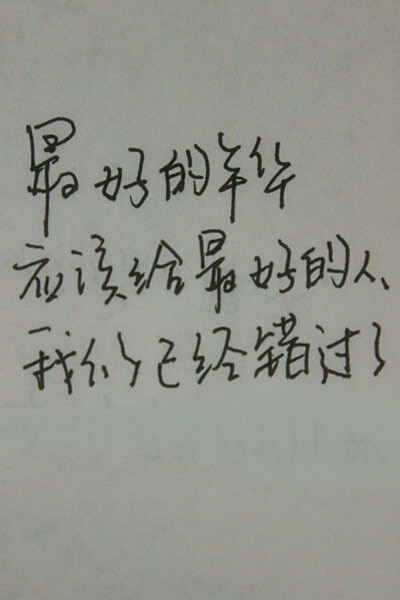 最好的年华
应该给最好的人、
我们已经错过了